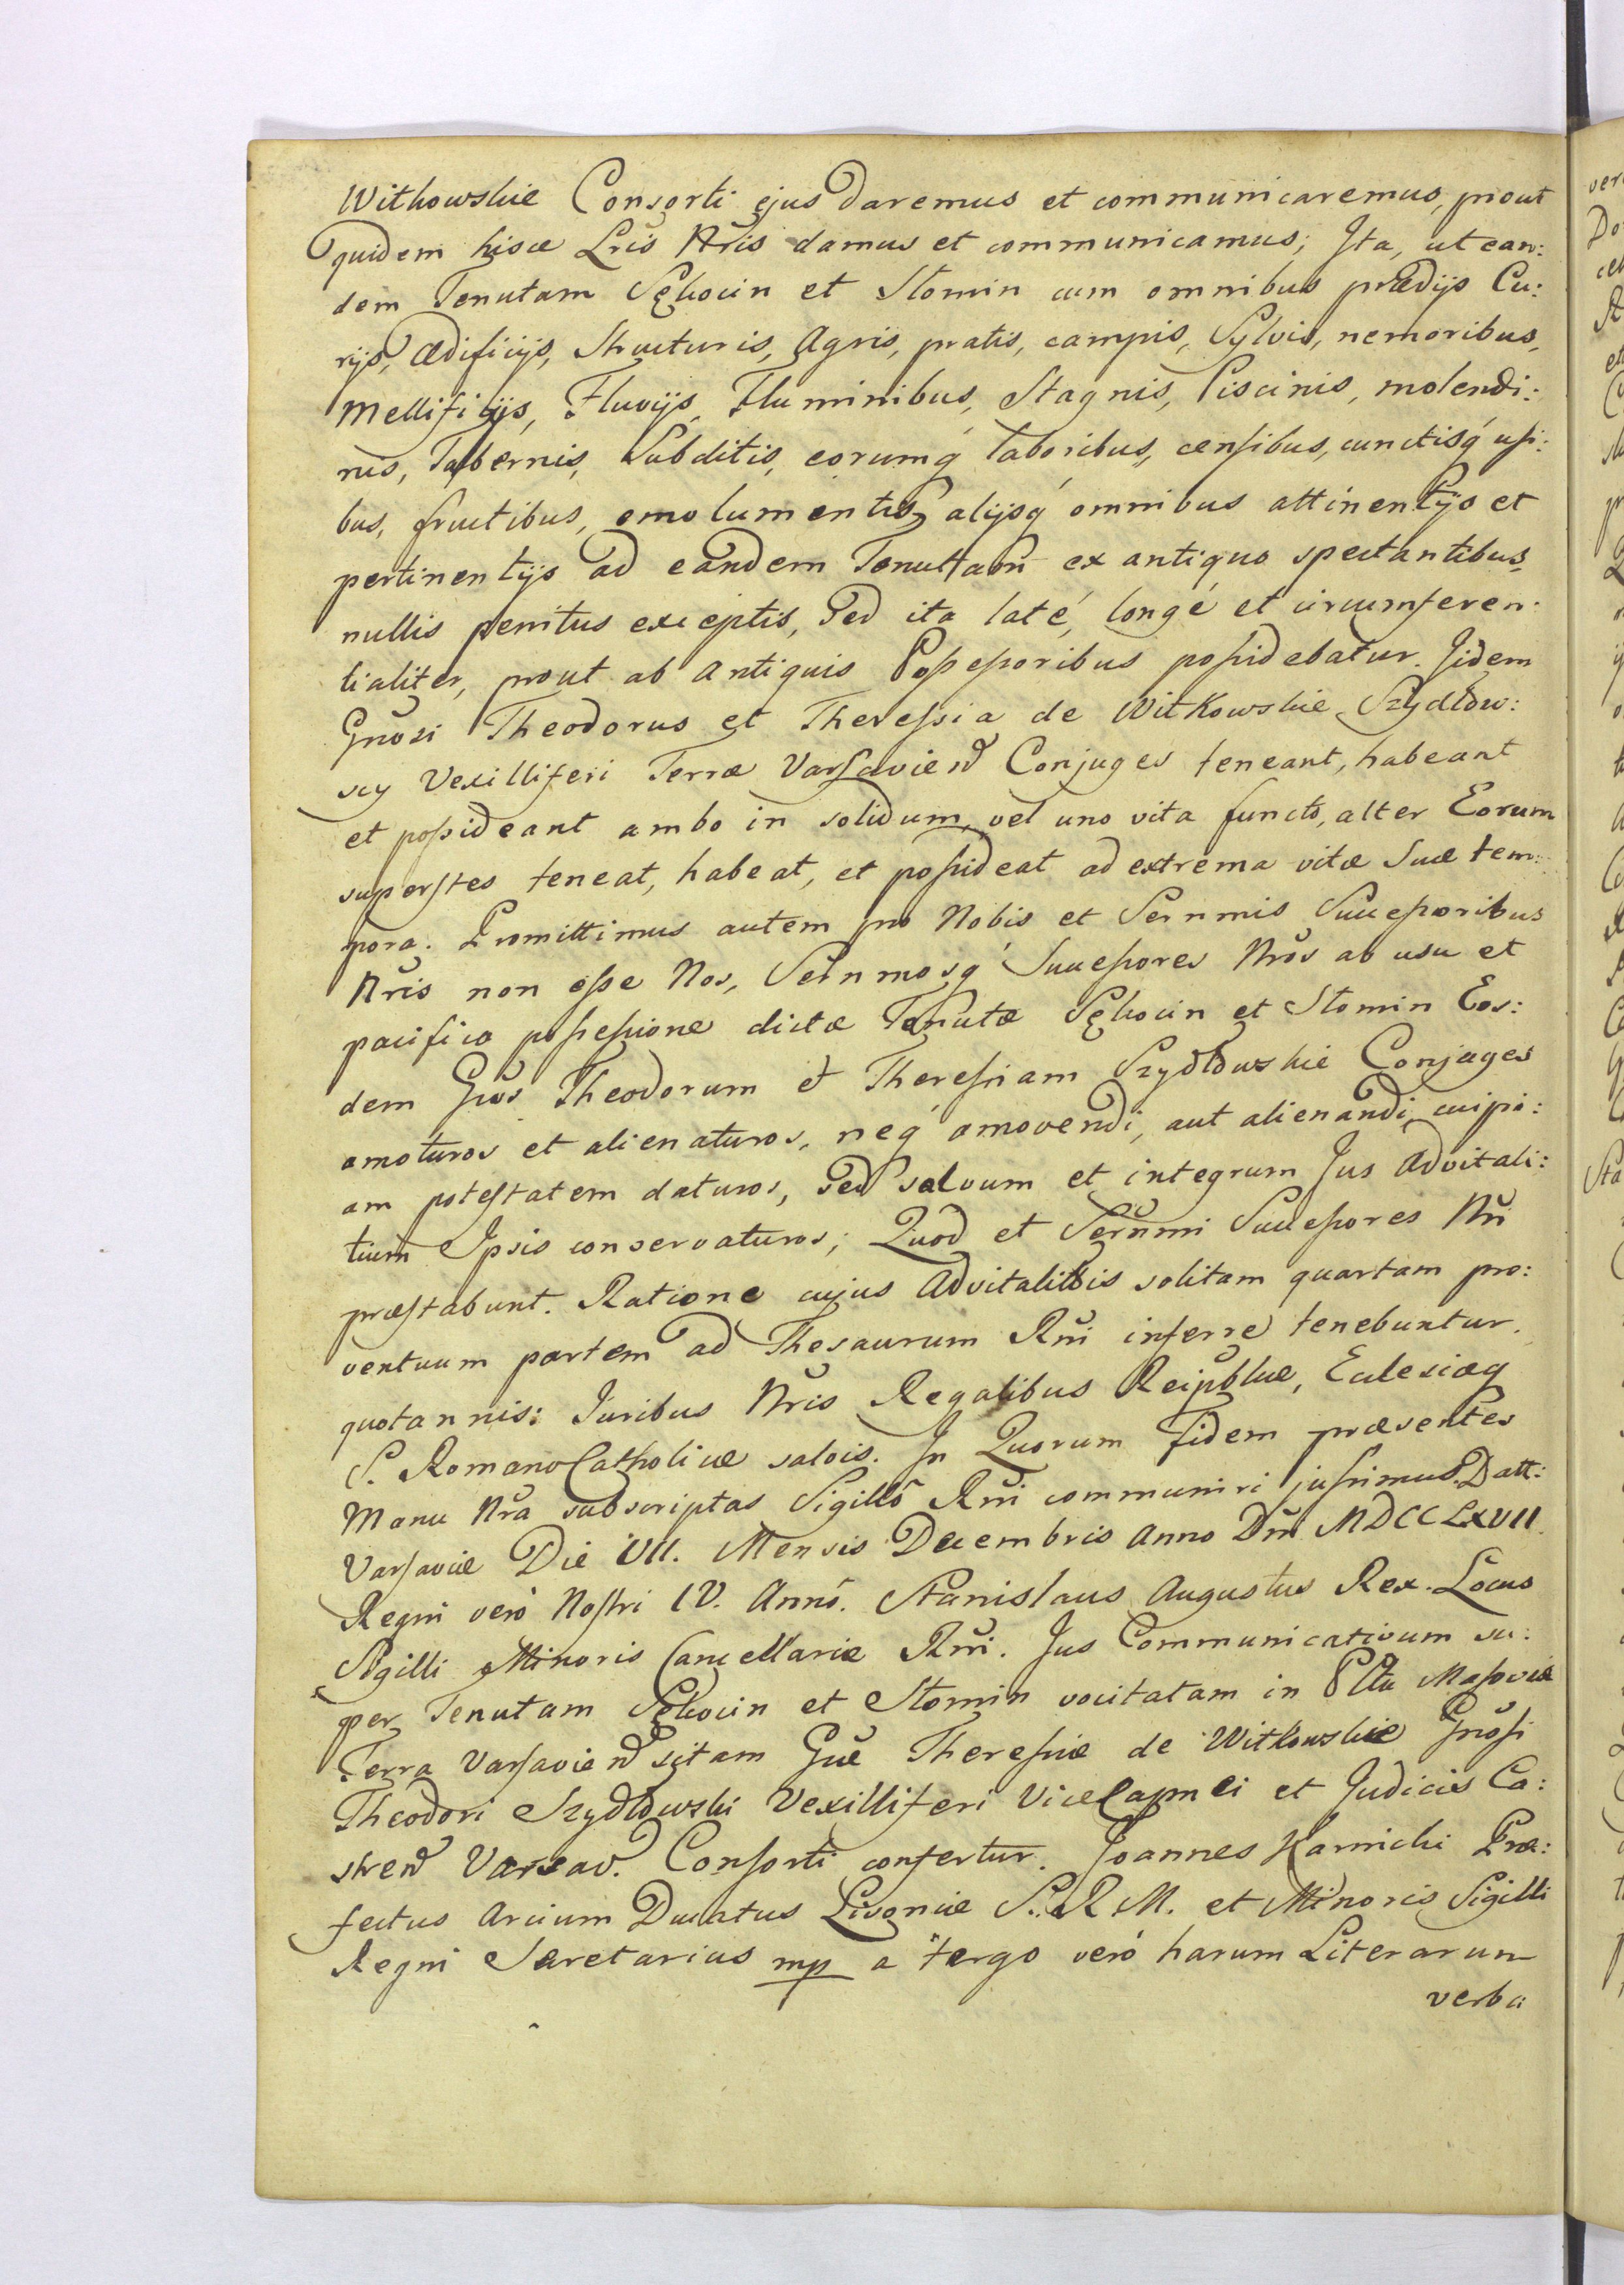 Witkowskie Consorti ejus daremus et communicaremus, prout
quidem hisce Lris Nris damus et communicamus; Ita, ut ean:
dem Tenutam Sękocin et Słomin cum omnibus prædijs Cu:
rijs, ædificijs, Structuris, Agris, pratis, campis, Sylvis, nemoribus,
Mellificijs, Fluvijs, Fluminibus, Stagnis, Piscinis, molendi:
nis, Tabernis, Subditis, eorumq́ laboribus, censibus, cunctisq́ usi:
bus, fructibus, emolumentis, alijsq́ omnibus attinentijs et
pertinentijs ad eandem Tenuttam ex antiquo spectantibus,
nullis penitus exceptis, Sed ita laté, longé et circumferen:
tialiter, prout ab antiquis Possessoribus possidebatur. Iidem
Gnosi Theodorus et Theressia de Witkowskie Szydłow:
scy Vexilliferi Terræ Varsavien̄ Conjuges teneant, habeant
et possideant ambo in solidum, vel uno vita functo, alter Eorum
superstes teneat, habeat, et possideat ad extrema vitæ Suæ tem:
pora. Promittimus autem pro Nobis et Sernmis Successoribus
Nris non esse Nos, Sernmosq́ Successores Nros ab usu et
pacifica possessione dictæ Tenutæ Sękocin et Słomin Eos:
dem Gños Theodorum et Theressiam Szydłowskie Conjuges
amoturos et alienaturos, neq́ amovendi, aut alienandi cuipi:
am potestatem daturos, sed salvum et integrum Jus Advitali:
tium Ipsis conservaturos; Quod et Sernmi Successores Nri
præstabunt. Ratione cujus Advitalitatis solitam quartam pro:
ventuum partem ad Thesaurum Rni inferre tenebuntur.
quotannis: Juribus Nris Regalibus Reipblicæ, Eclesiæq́
S. Romano Catholicæ salvis. In Quorum fidem præsentes
Manu Nra subscriptas Sigillo Rni communiri jussimus. Datt:
Varsaviæ Die VII. Mensis Decembris Anno Dni MDCCLXVII
Regni veró Nostri IV. Anno. Stanislaus Augustus Rex. Locus
Sigilli Minoris Cancellariæ Rni. Jus Communicativum su:
per Tenutam Sękocin et Słomin vocitatam in Pltu Masoviæ
Terra Varsavien̄ sitam Gnæ Theressiæ de Witkowskie Gnosi
Theodori Szydłowski Vexilliferi ViceCapnei et Judicis Ca:
stren̄ Varsav. Consorti confertur. Joannes Karnicki Præ:
fectus Arcium Ducatus Livoniæ S. R. M. et Minoris Sigilli
Regni Secretarius mp a tergo veró harum Literarum
verba